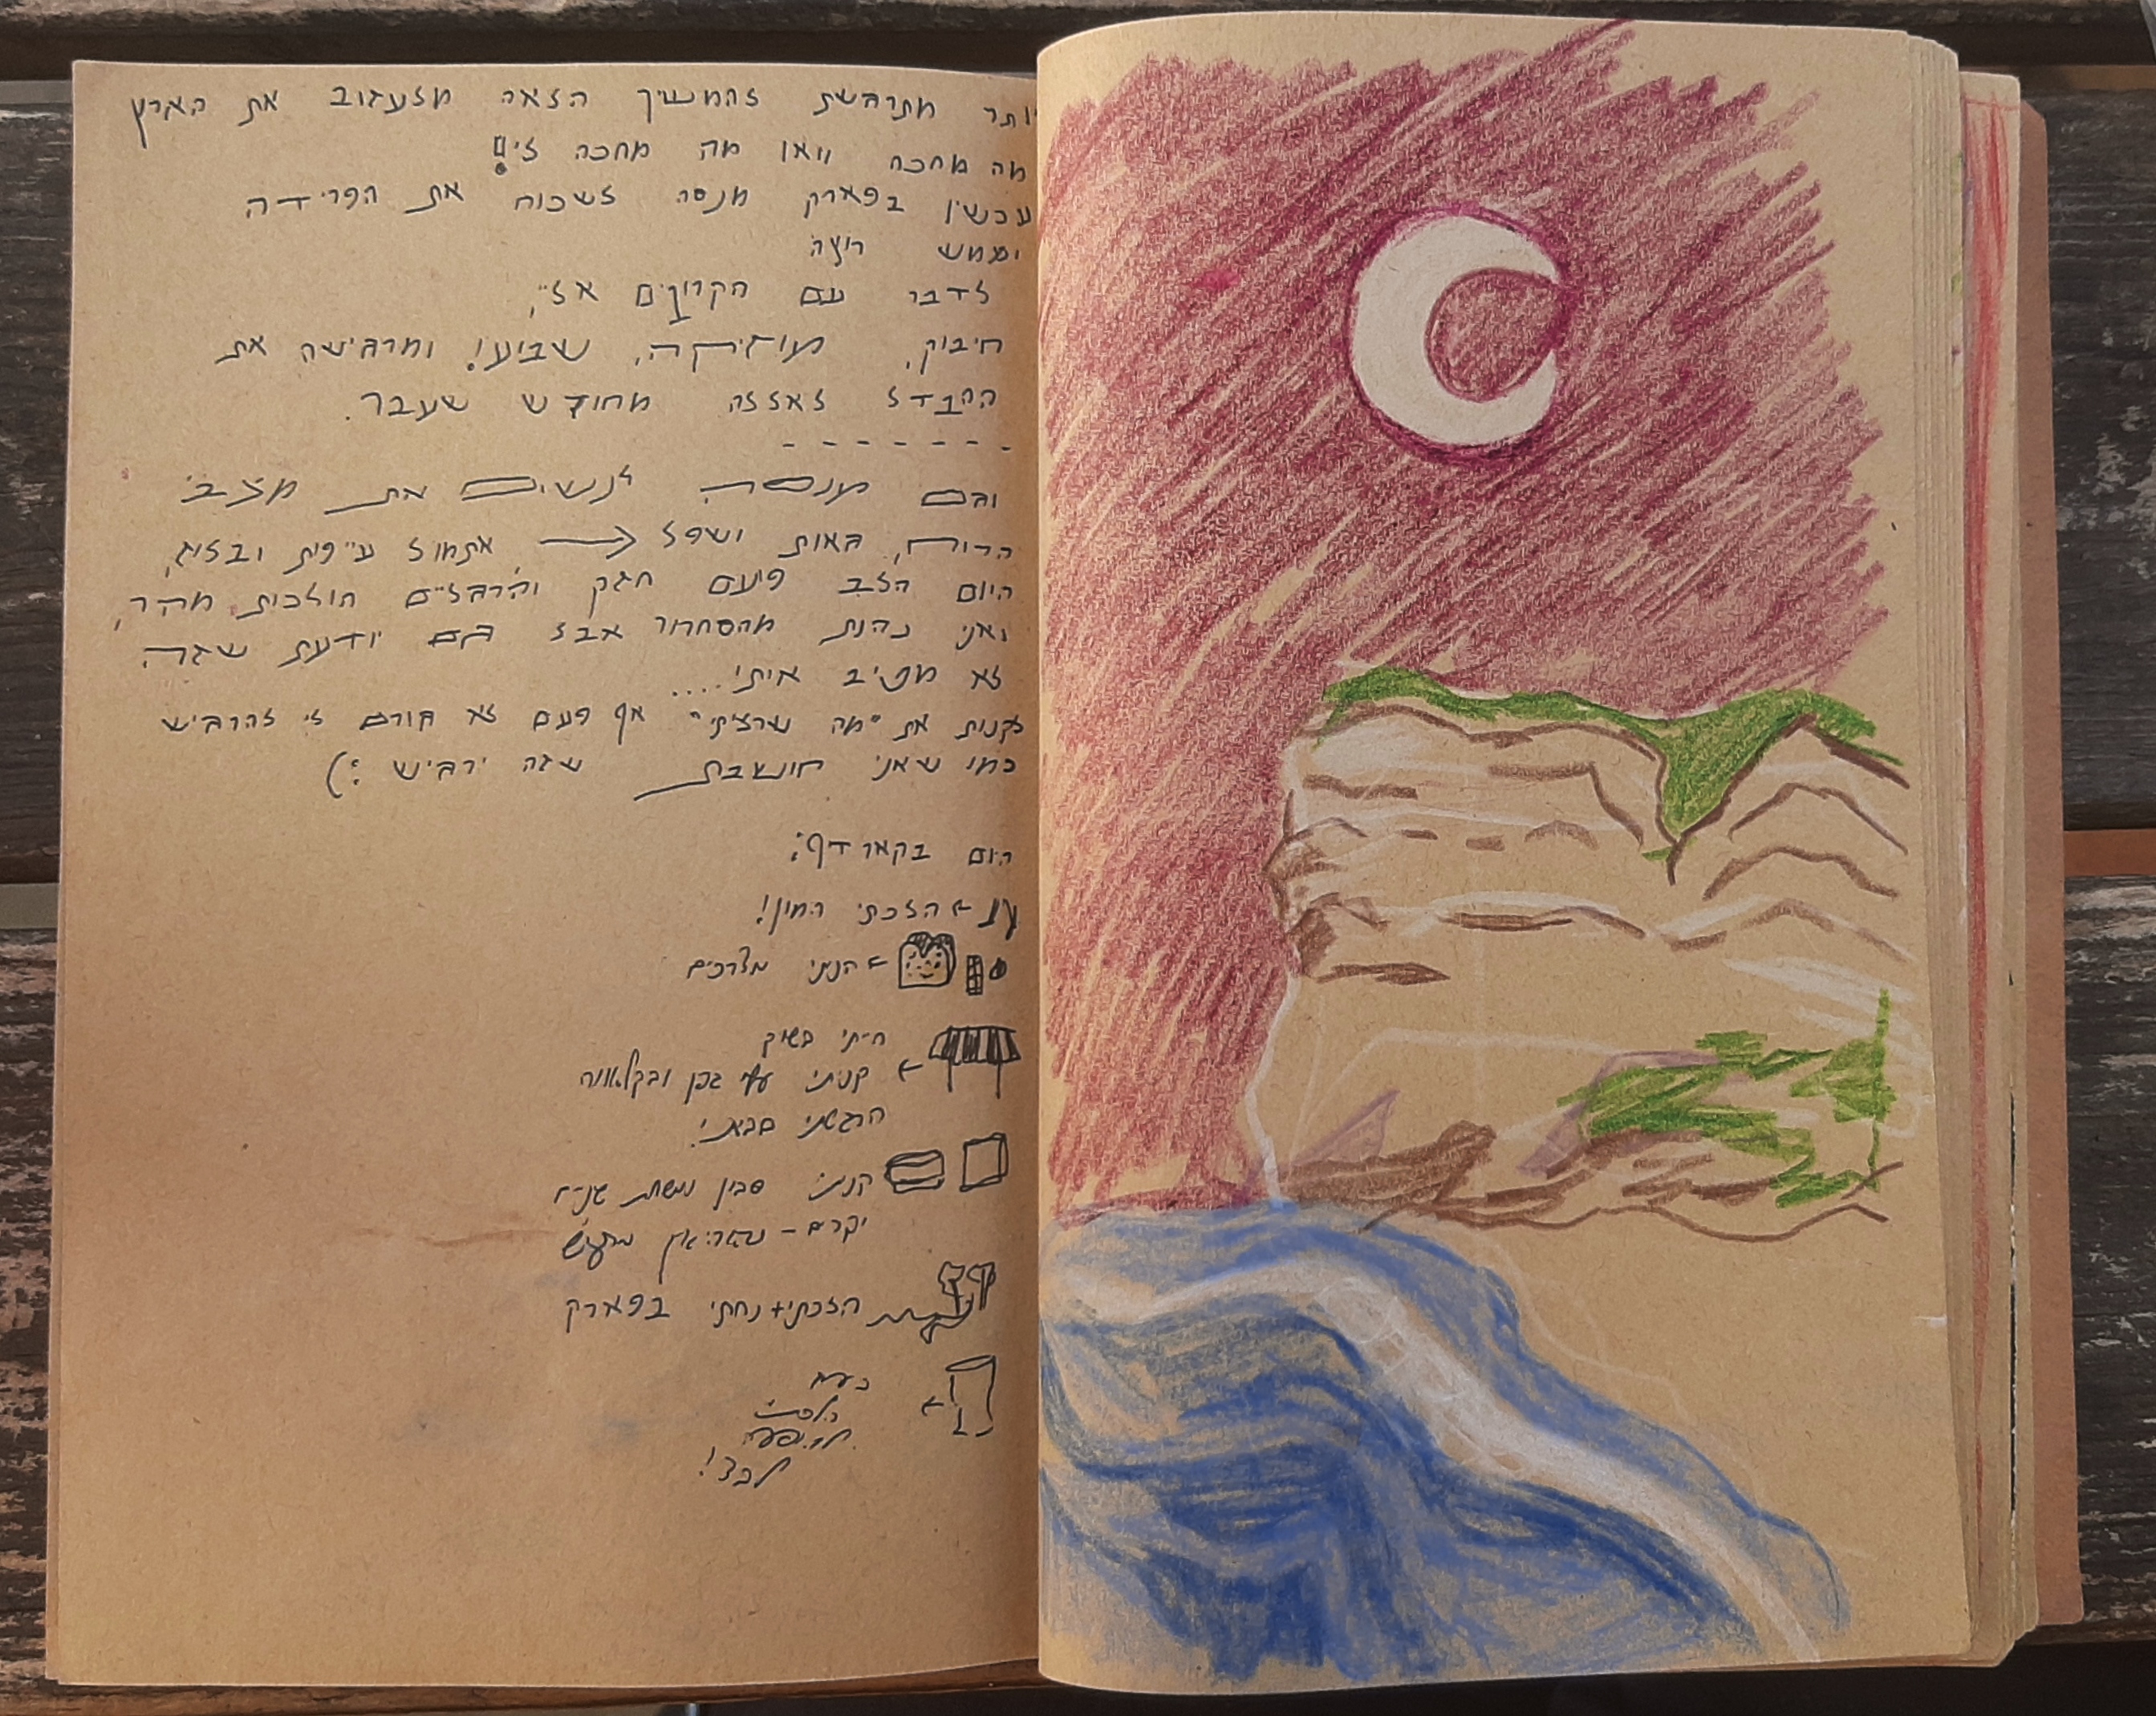 יותר מתרגשת להמשיך הלאה מלעזוב את הארץ
מה מחכה וואו מה מחכה לי?!
עכשיו בפארק מנסה לשכוח את הפרידה
וממש רוצה
לדבר עם הקרובים אלי,
חיבוק, מוזיקה, שביעו! ומרגישה את
ההבדל לאללה מחודש שעבר.
וגם מנסה לנשום את מצבי
הרוח, גאות ושפל ← אתמול עייפות ובלוז,
היום הלב פועם חזק והרגליים הולכות מהר,
ואני נהנת מהסחרור אבל גם יודעת שזה
לא מטיב איתי....
לקנות את "מה שרציתי" אף פעם לא גורם לי להרגיש
כמו שאני חושבת שזה ירגיש :)
היום בקארדיף:
הלכתי המון!
קניתי מצרכים
הייתי בשוק
קניתי עלי גפן ובקלאווה
הרגשתי בבית!
קניתי סבון ומשחת שיניים
יקרים –
הלכתי + נחתי בפארק
כעת
הולכת
להופעה
לבד!